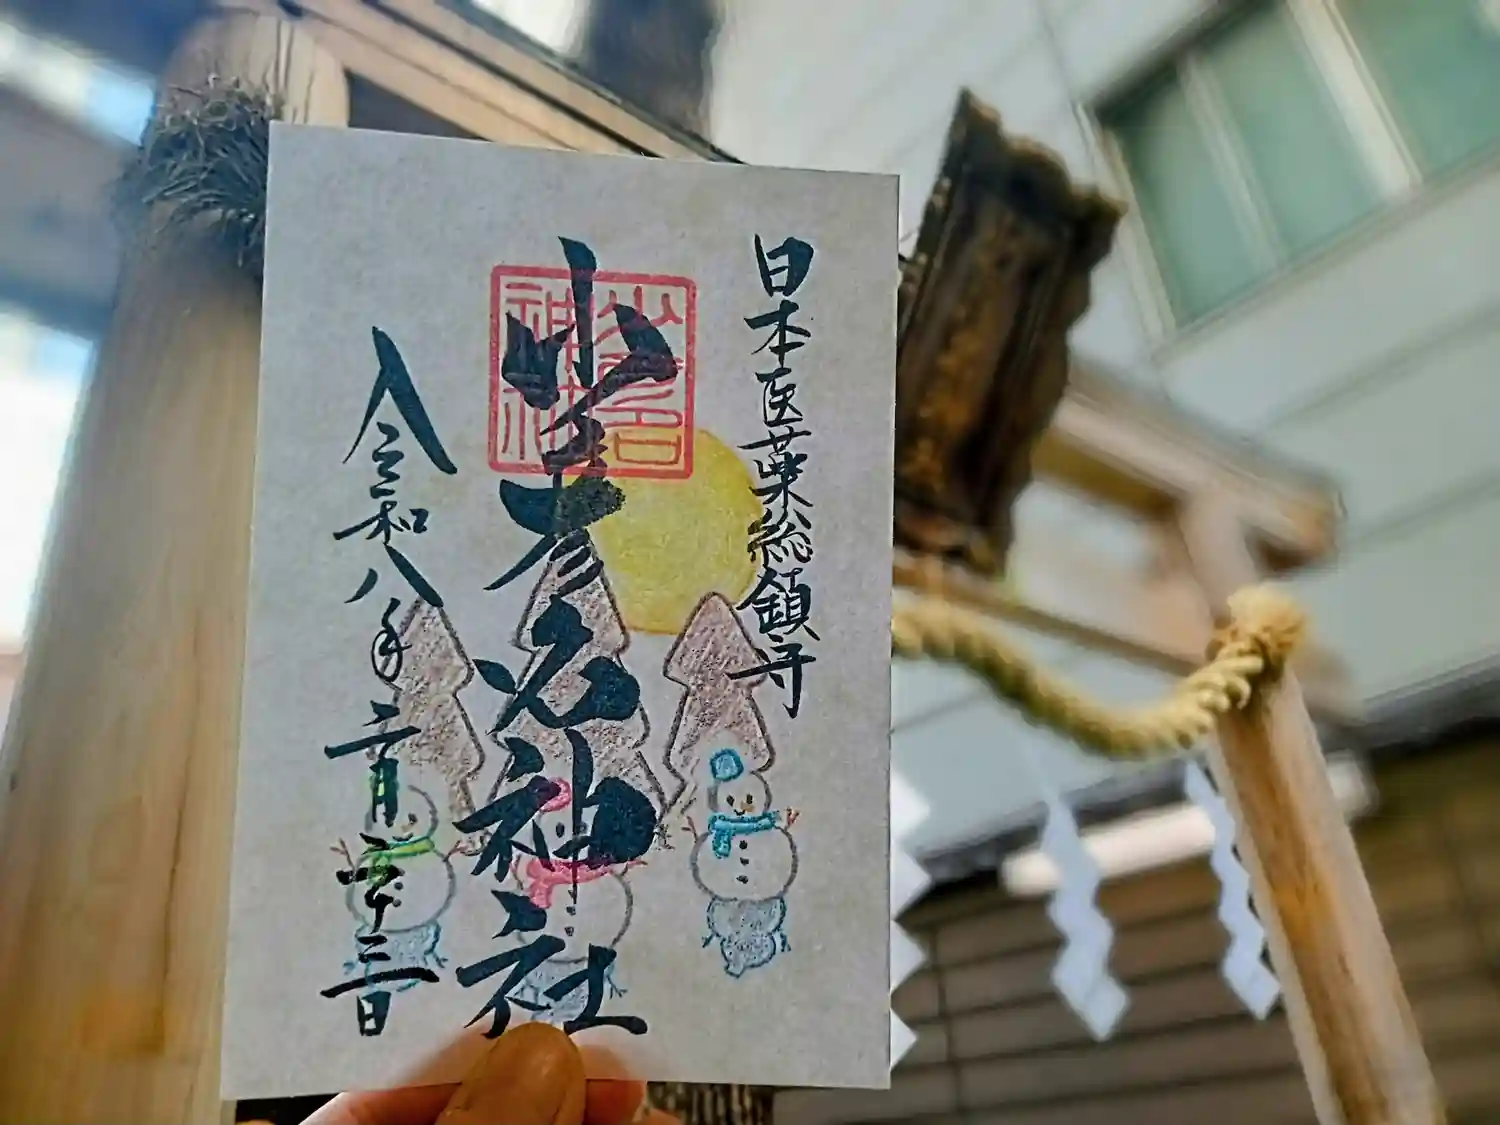 日本医薬総鎮守
少彦名神社
少彦名
神社
令和八年二月二十三日